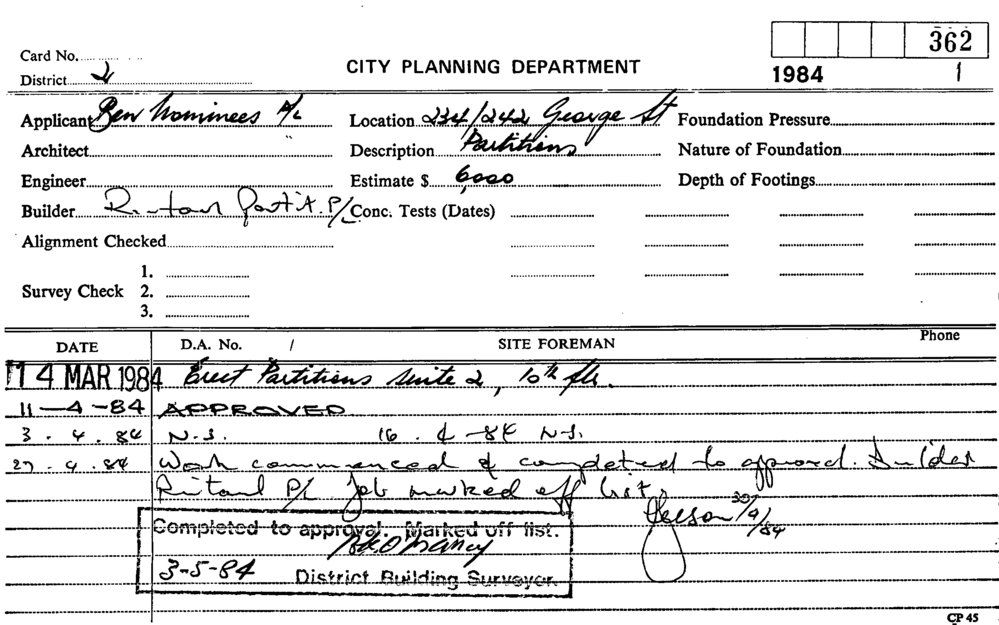 362
Card No.
CITY PLANNING DEPARTMENT
District 2
1984 1
Applicant Ben Nominees P/L Location 234/242 George St Foundation Pressure
Architect Description Partitions Nature of Foundation
Engineer Estimate $ 6,000 Depth of Footings
Builder P/L Conc. Tests (Dates)
Alignment Checked
1.
Survey Check 2.
3.
DATE D.A. No. / SITE FOREMAN Phone
14 MAR 1984 Erect Partitions suite 2, 10th flr.
11-4-84 APPROVED
3.4.84 N.S. 16.4-84 N.S.
27.4.84 Work commenced & completed to approval. Builder
P/L Job marked off list.
30/4/84
Completed to approval. Marked off list.
3-5-84 District Building Surveyor.
CP 45